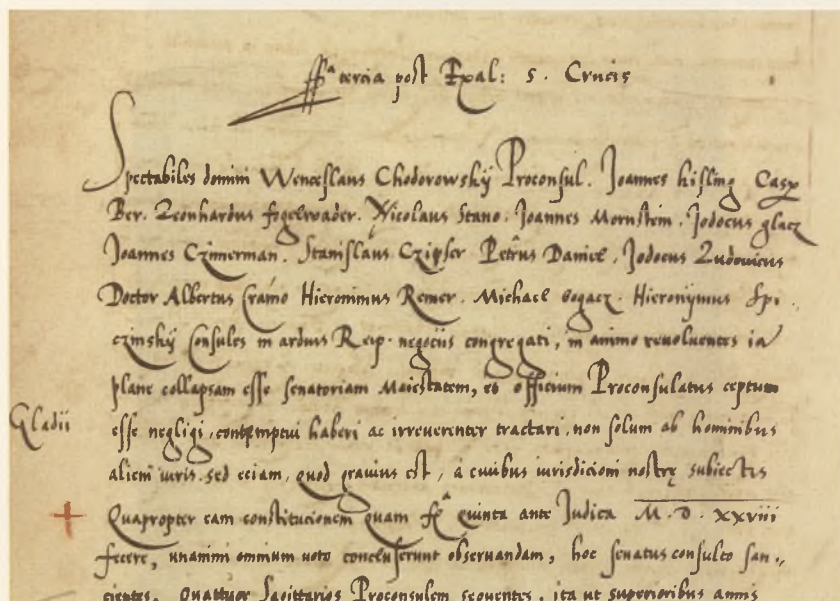 ffª tercia post Exal: S. Crucis
Spectabiles domini Wenceslaus Chodorowskÿ Proconsul. Joannes kisling Casp
Ber. Leonhardus fogelweder. Nicolaus Stano. Joannes Mornstein. Jodocus glacz
Joannes Czimerman. Stanislaus Czipser Petrus Daniel. Jodocus Ludovicus
Doctor Albertus Cramo Hieronimus Remer. Michael bogacz. Hieronÿmus Spi.
czinskÿ Consules in arduis Reip. negociis congregati, in animo revoluentes ia
plane collapsam esse senatoriam Maiestatem, et officium Proconsulatus ceptum
Gladii
esse negligi, contemptui haberi ac irreverenter tractari, non solum ab hominibus
alieni iuris. sed eciam, quod gravius est, a civibus iurisdicioni nostrę subiectis
Quapropter eam constitucionem quam fª quinta ante Judica M. D. XXVIII
fecere, unanimi omnium voto concluserunt observandam, hoc senatus consulto san.,
cientes. Quattuor Sagittarios Proconsulem sequentes, ita ut superioribus annis